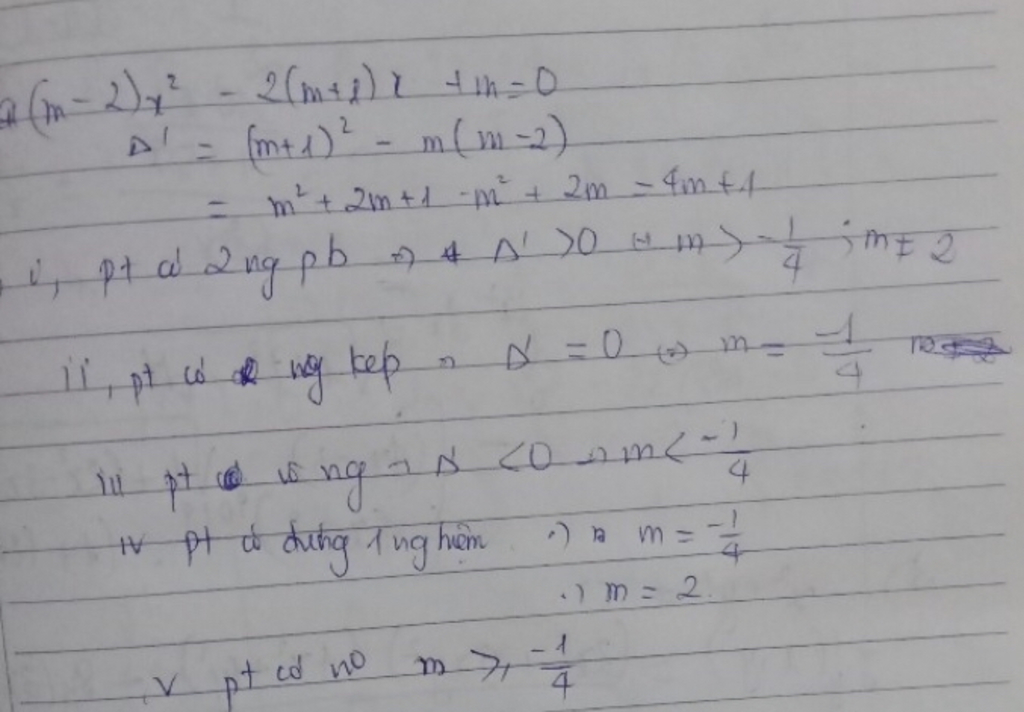 a (m-2)x² - 2(m+1)x + m = 0
Δ' = (m+1)² - m(m-2)
= m² + 2m + 1 - m² + 2m = 4m + 1
i, pt có 2 ng pb => Δ' > 0 <=> m > -1/4 ; m ≠ 2
ii, pt có ng kép => Δ' = 0 <=> m = -1/4
iii pt vô ng → Δ' < 0 → m < -1/4
iv pt có đúng 1 nghiệm .) m = -1/4
.) m = 2
v pt có no m ≥ -1/4